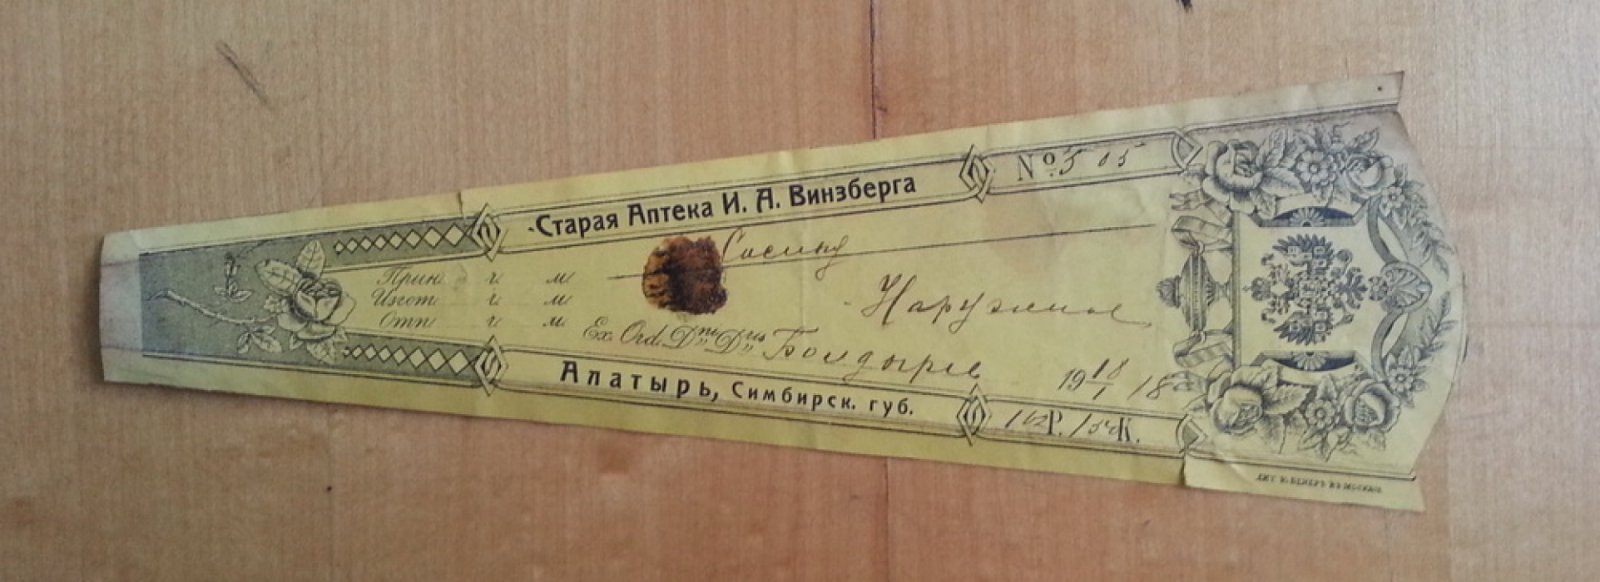 Старая Аптека И. А. Винзберга
№ 505
Прин. г. м.
Изгот. г. м.
Отп. г. м.
Наружное
Ex. Ord. Dni Dris Болдырев
1918
Алатырь, Симбирск. губ.
Р. К.